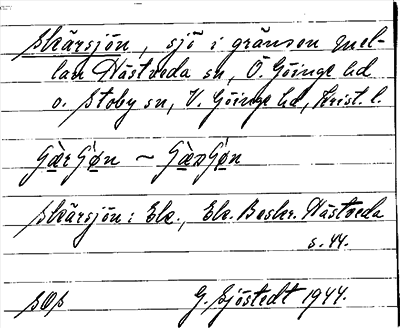 Skärsjön, sjö i gränsen mel-
lan Hästveda sn, Ö. Göinge hd
o. Stoby sn, V. Göinge hd, Krist. l.
Skärsjön: Ek., Ek. Beskr. Hästveda
s. 44.
G. Sjöstedt 1944.